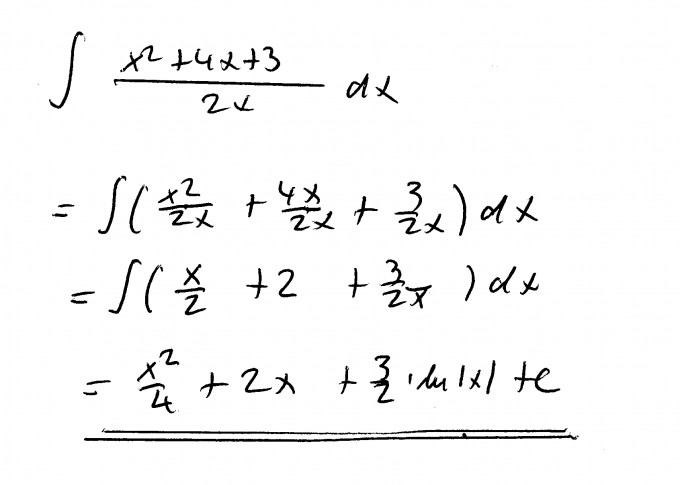 ∫ (x² + 4x + 3)/(2x) dx
= ∫ ( x²/2x + 4x/2x + 3/2x ) dx
= ∫ ( x/2 + 2 + 3/2x ) dx
= x²/4 + 2x + 3/2 · ln |x| + c